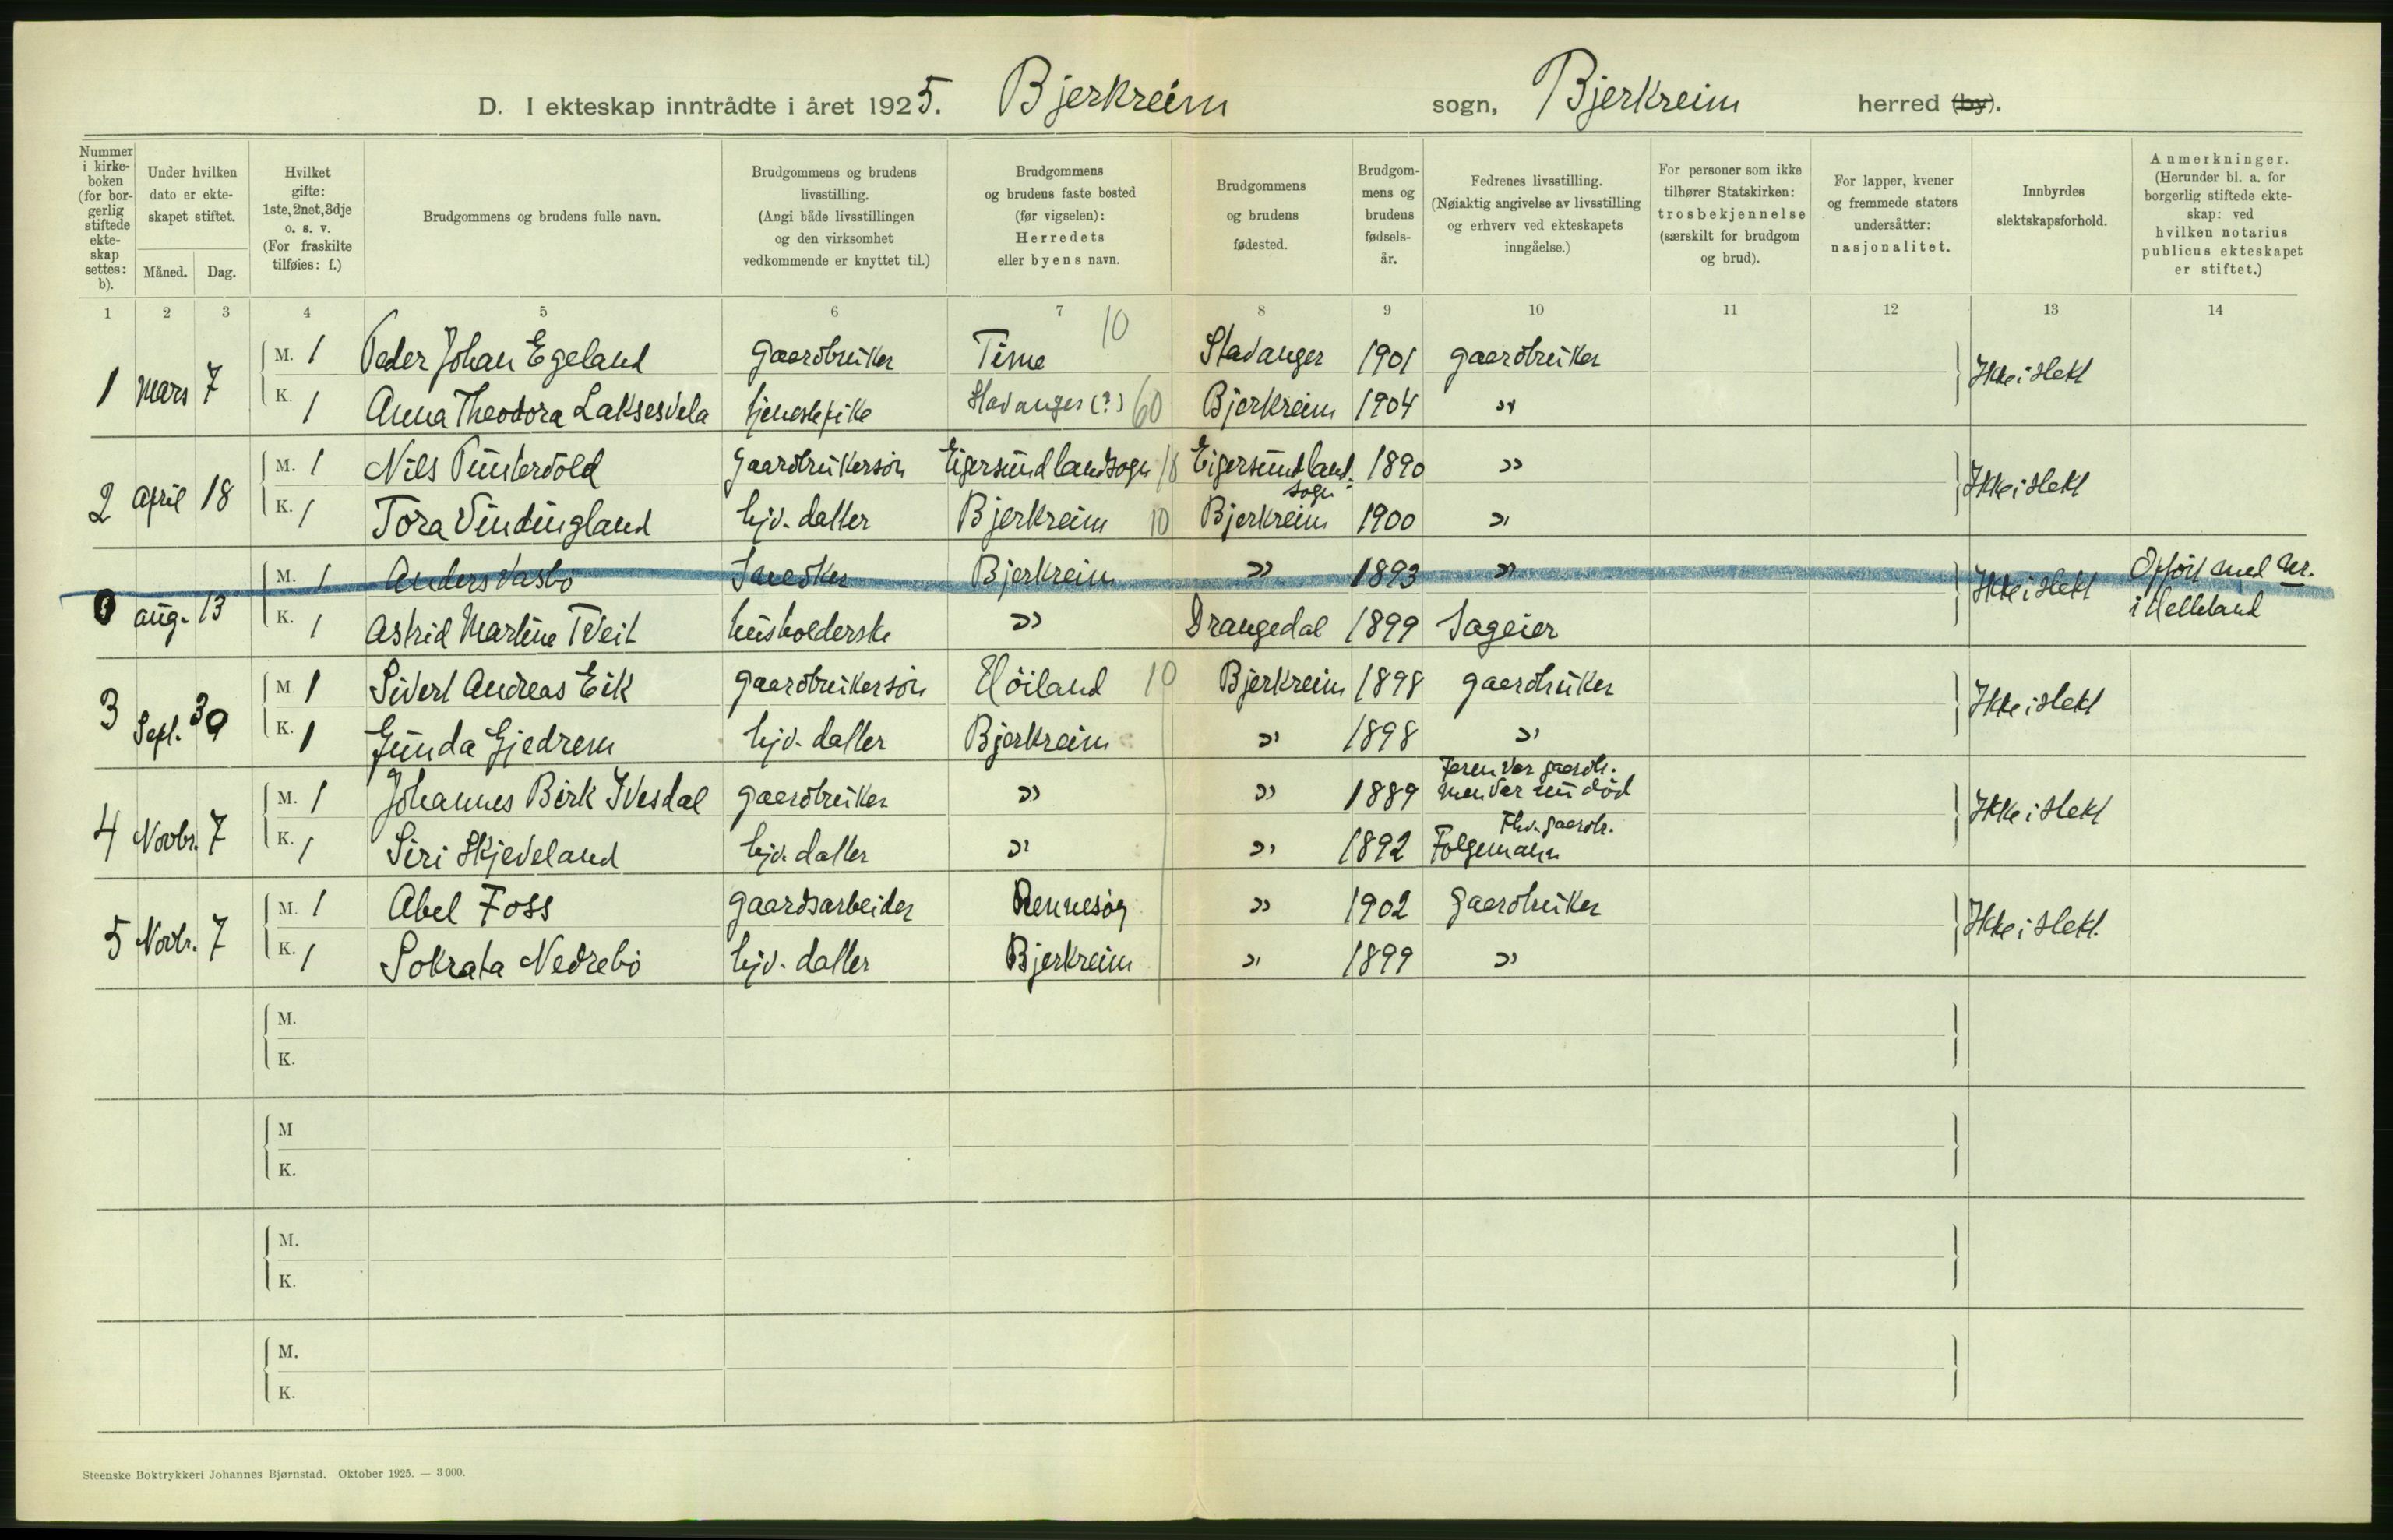 D. I ekteskap inntrådte i året 1925. Bjerkreim sogn, Bjerkreim herred (by).
Nummer i kirkeboken (for borgerlig stiftede ekteskap settes: b).
Under hvilken dato er ekteskapet stiftet.
Måned. Dag.
Hvilket gifte: 1ste, 2net, 3dje o. s. v. (For fraskilte tilføies: f.)
Brudgommens og brudens fulle navn.
Brudgommens og brudens livsstilling. (Angi både livsstillingen og den virksomhet vedkommende er knyttet til.)
Brudgommens og brudens faste bosted (før vigselen): Herredets eller byens navn.
Brudgommens og brudens fødested.
Brudgommens og brudens fødselsår.
Fedrenes livsstilling. (Nøiaktig angivelse av livsstilling og erhverv ved ekteskapets inngåelse.)
For personer som ikke tilhører Statskirken: trosbekjennelse (særskilt for brudgom og brud).
For lapper, kvener og fremmede staters undersåtter: nasjonalitet.
Innbyrdes slektskapsforhold.
Anmerkninger. (Herunder bl. a. for borgerlig stiftede ekteskap: ved hvilken notarius publicus ekteskapet er stiftet.)
1 2 3 4 5 6 7 8 9 10 11 12 13 14
10
M. 1 Peder Johan Egeland gaardbruker Time Stavanger 1901 gaardbruker
1 Mars 7 Ikke i slekt
K. 1 Anna Theodora Laksesvela tjenestepike Stavanger (?) 60 Bjerkreim 1904 "
M. 1 Nils Puntervold Gaardbrukersøn Eigersund landsogn 18 Eigersund land-sogn 1890 "
2 April 18 Ikke i slekt
K. 1 Tora Vindingland hjv. datter Bjerkreim 10 Bjerkreim 1900 "
M. 1 Anders Vasbø Snedker Bjerkreim " 1893 " Opført med nr.
aug. 13 Ikke i slekt
K. 1 Astrid Martine Tveit husholderske " Drangedal 1899 Sageier i Helleland
M. 1 Sivert Andreas Eik gaardbrukersøn Høiland 10 Bjerkreim 1898 gaardbruker
3 Sept. 30 Ikke i slekt
K. 1 Gunda Gjedrem hjv. datter Bjerkreim " 1898 "
M. 1 Johannes Birk Ivesdal gaardbruker " " 1889 Faren var gaardbr. men var nu død
4 Novbr. 7 Ikke i slekt
K. 1 Siri Skjeveland hjv. datter " " 1892 Fhv. gaardbr. Folgemann
M. 1 Abel Foss gaardsarbeider Rennesøy " 1902 Gaardbruker
5 Novbr. 7 Ikke i slekt.
K. 1 Sokrata Nedrebø hjv. datter Bjerkreim " 1899 "
M.
K.
M
K.
M.
K.
M.
K.
Steenske Boktrykkeri Johannes Bjørnstad. Oktober 1925. — 3 000.